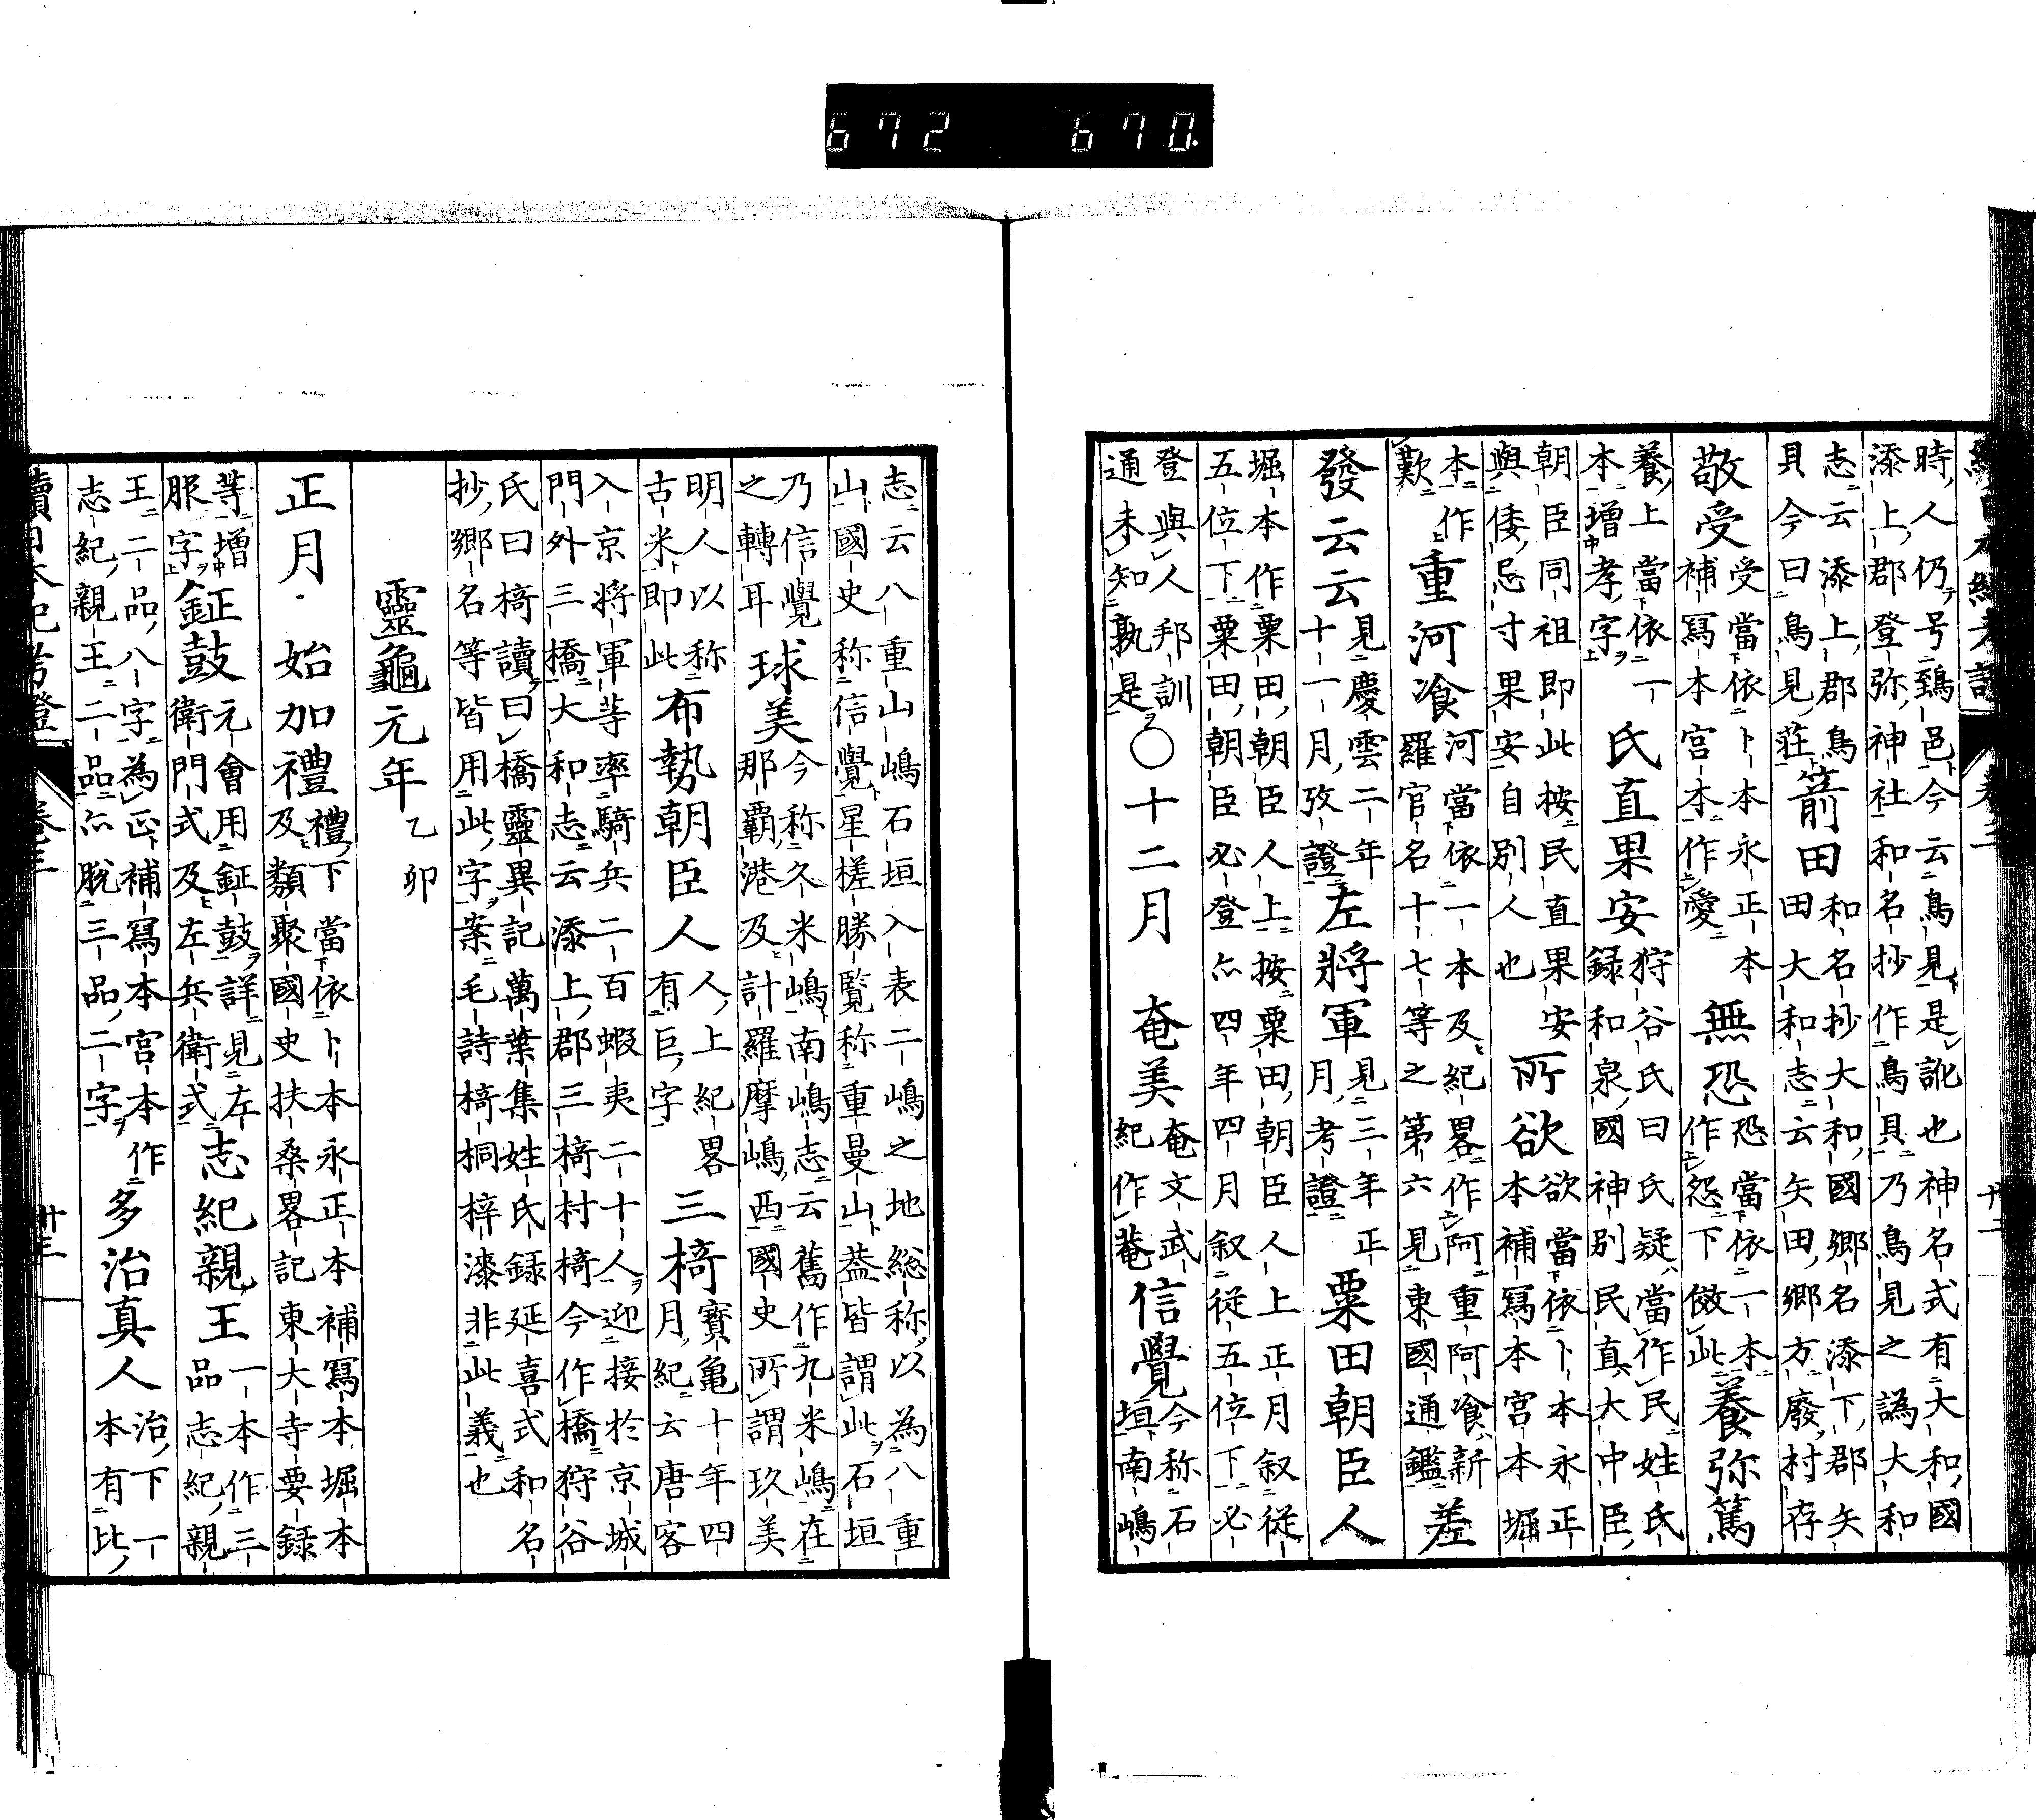 672 670.
時人仍号鵄邑今云鳥見是訛也神名式有大和國
添上郡登弥神社和名抄作鳥貝乃鳥見之譌大和
志云添上郡鳥
貝今曰鳥見莊
箭田
和名抄大和國鄉名添下郡矢
田大和志云矢田鄉方廢村存
敬受
受當依卜本永正本
補寫本宮本作愛
無恐
恐當依一本
作怨下傚此
養弥篤
養上當依一
本增孝字
氏直果安
狩谷氏曰氏疑當作民姓氏
録和泉國神別民直大中臣
朝臣同祖即此按民直果安
與倭忌寸果安自別人也
所欲
欲當依卜本永正
本補寫本宮本堀
本作
歎
重河飡
河當依一本及紀畧作阿重阿飡新
羅官名十七等之第六見東國通鑑
差
發云云
見慶雲二年
十一月攷證
左將軍
見三年正
月考證
粟田朝臣人
堀本作粟田朝臣人上按粟田朝臣人上正月叙從
五位下粟田朝臣必登亦四年四月叙從五位下必
登與人邦訓
通未知孰是
〇十二月
奄美
奄文武
紀作菴
信覺
今称石
垣南嶋
志云八重山嶋石垣入表二嶋之地総称以為八重
山國史称信覺星槎勝覧称重曼山葢皆謂此石垣
乃信覺
之轉耳
球美
今称久米嶋南嶋志云舊作九米嶋在
那覇港及計羅摩嶋西國史所謂玖美
明人以称
古米即此
布勢朝臣人
人上紀畧
有巨字
三椅
寳亀十年四
月紀云唐客
入京將軍等率騎兵二百蝦夷二十人迎接於京城
門外三橋大和志云添上郡三椅村椅今作橋狩谷
氏曰椅讀曰橋靈異記萬葉集姓氏録延喜式和名
抄鄉名等皆用此字案毛詩椅桐梓漆非此義也
靈龜元年
乙卯
正月
始加禮
禮下當依卜本永正本補寫本堀本
及類聚國史扶桑畧記東大寺要録
等增
服字
鉦鼓
元會用鉦鼓詳見左
衛門式及左兵衛式
志紀親王
一本作三
品志紀親
王二品八字為正補寫本宮本作
志紀親王二品亦脫三品二字
多治真人
治下一
本有比
續日本紀考證
卷三
十二
十三